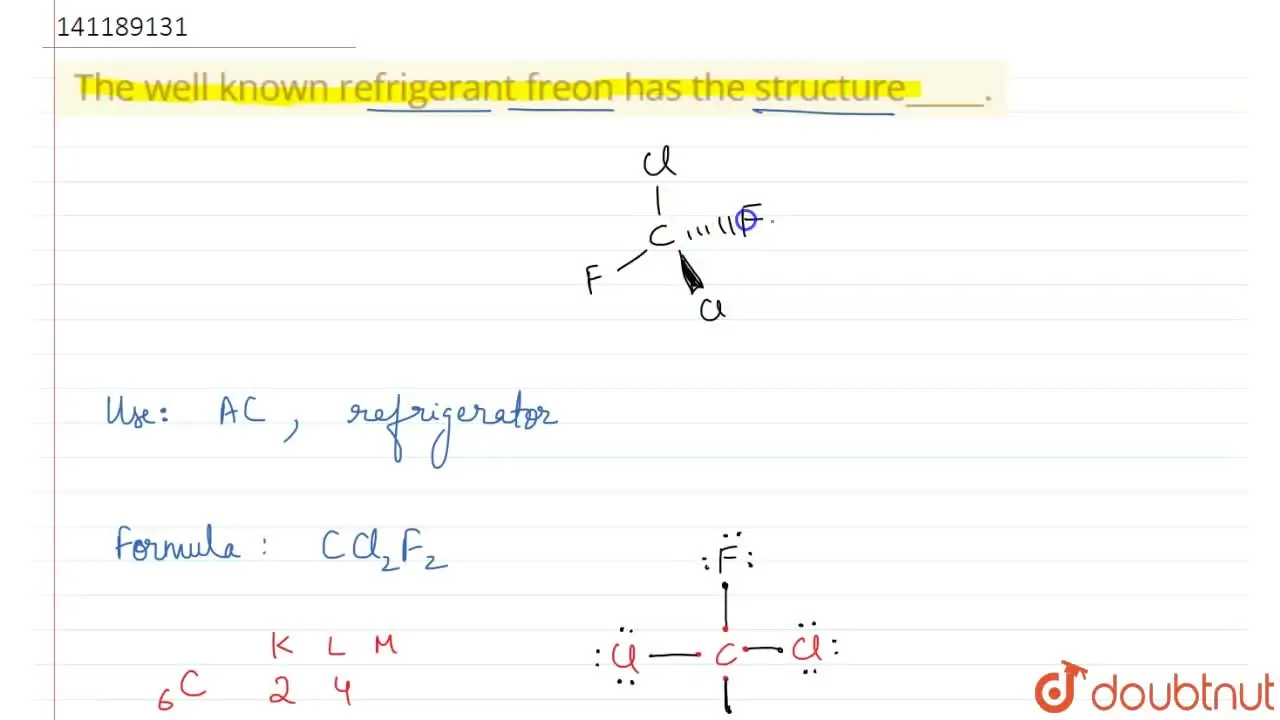 141189131
The well known refrigerant freon has the structure_____.
Cl
C F
F
Cl
Use: AC, refrigerator
Formula: CCl₂F₂
:F:
K L M
:Cl C Cl:
₆C 2 4
doubtnut